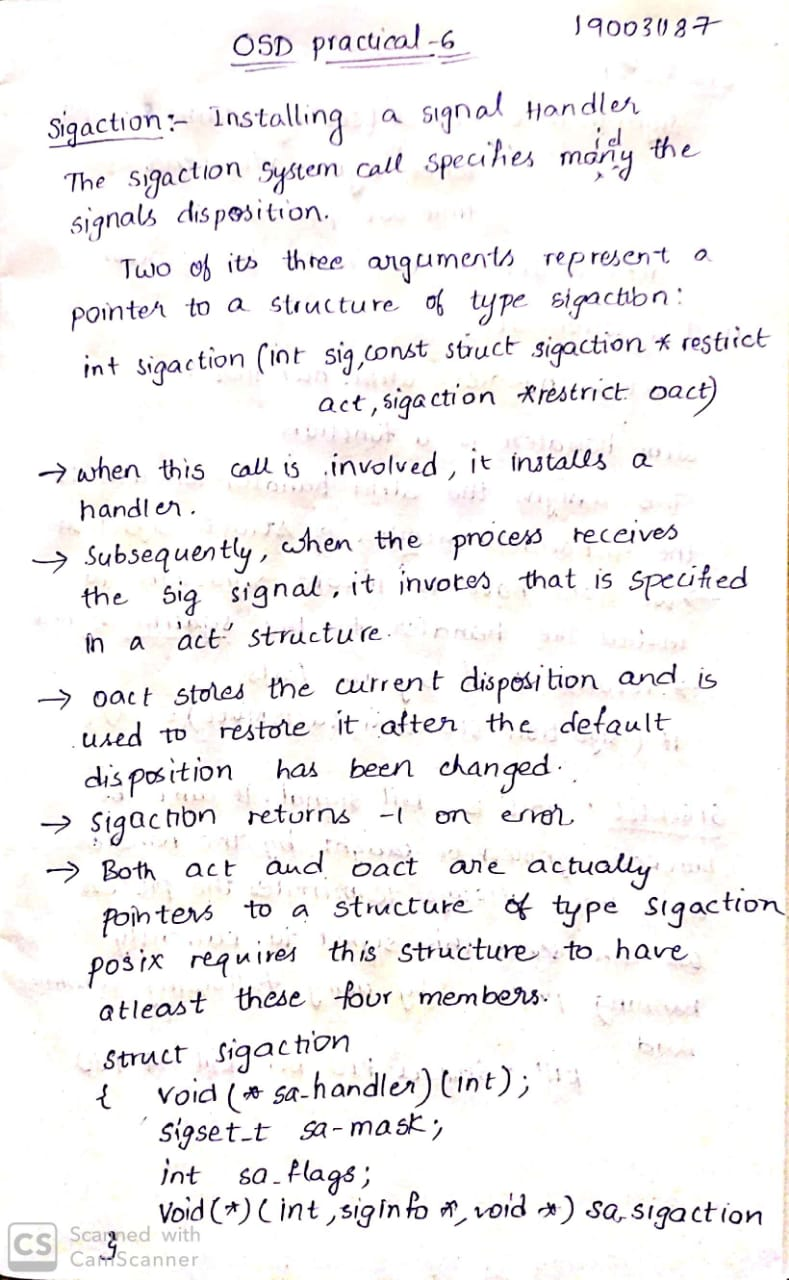 OSD practical-6
190031187
Sigaction:- Installing a signal Handler
The sigaction System call specifies the
signals disposition.
Two of its three arguments represent a
pointer to a structure of type sigaction:
int sigaction (int sig, const struct sigaction * restrict
act, sigaction *restrict oact)
→ when this call is involved, it installs a
handler.
→ Subsequently, when the process receives
the sig signal, it invokes that is specified
in a 'act' structure.
→ oact stores the current disposition and is
used to restore it after the default
disposition has been changed.
→ sigaction returns -1 on error
→ Both act and oact are actually
pointers to a structure of type sigaction
posix requires this structure to have
atleast these four members.
struct sigaction
{ void (* sa-handler) (int);
sigset_t sa-mask;
int sa_flags;
void (*) ( int, siginfo *, void *) sa_sigaction
}
CS Scanned with
CamScanner